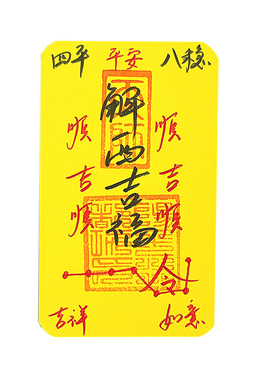 四平 平安 八穩
解
吉福
順吉順
順吉順
令
吉祥 如意